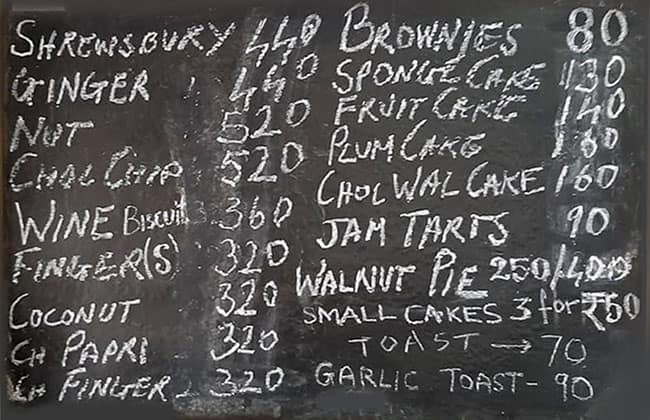 SHREWSBURY 440
GINGER : 440
NUT 520
CHOC CHIP : 520
WINE Biscuit : 360
FINGER(S) : 320
COCONUT 320
CH PAPRI 320
CH FINGER 320
BROWNIES 80
SPONGE CAKE 130
FRUIT CAKE 140
PLUM CAKE
CHOC WAL CAKE 160
JAM TARTS 90
WALNUT PIE 250/400
SMALL CAKES 3 for ₹50
TOAST → 70
GARLIC TOAST - 90